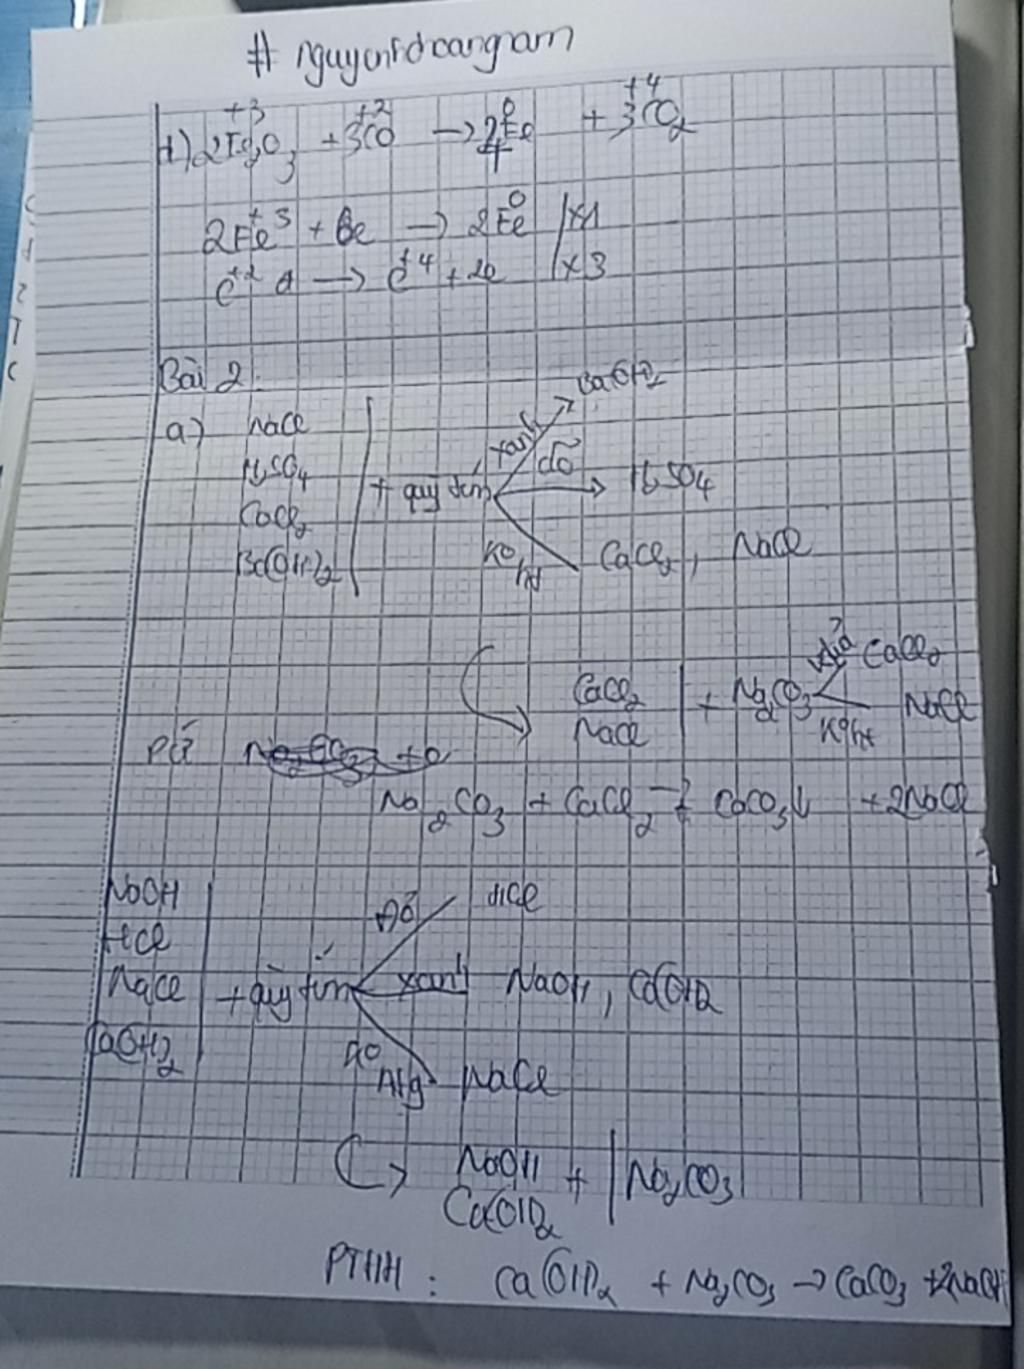 # nguyenhoangnam
+3 +2 0 +4
d) 2Fe2O3 + 3CO → 2Fe + 3CO2
4
2Fe+3 + 6e → 2Fe0 | x1
C+2 → C+4 + 2e | x3
Bài 2.
a) NaCl
H2SO4
CaCl2
Ba(OH)2
+ quỳ tím
xanh Ba(OH)2
đỏ H2SO4
Ko ht CaCl2, NaCl
CaCl2
NaCl
+ Na2CO3
CaCl2
Ko ht NaCl
PƯ
Na2CO3 + CaCl2 → CaCO3↓ + 2NaCl
NaOH
HCl
NaCl
Ca(OH)2
+ quỳ tím
đỏ HCl
xanh NaOH, Ca(OH)2
Ko NaCl
NaOH
Ca(OH)2
+ | Na2CO3
PTHH : Ca(OH)2 + Na2CO3 → CaCO3 + 2NaOH